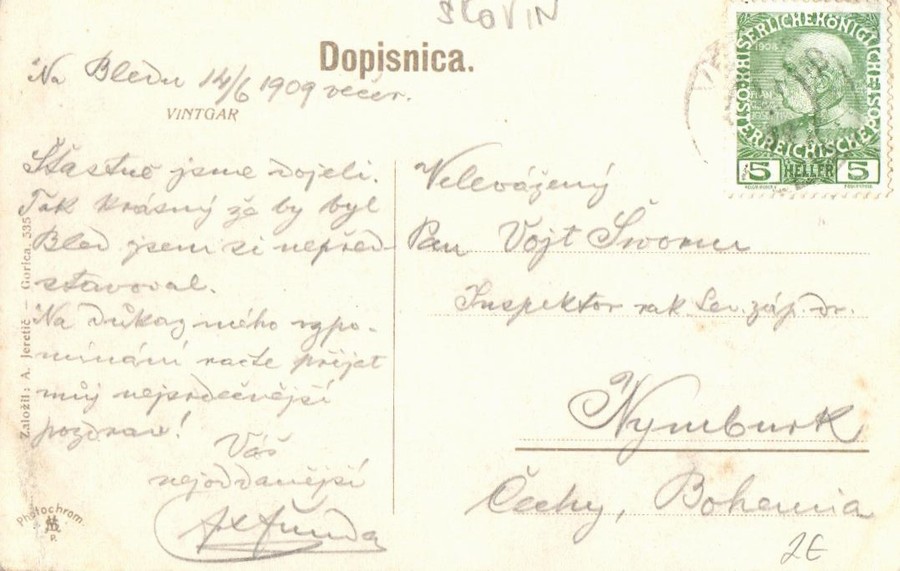 SLOVIN
Dopisnica.
Na Bledu 14/6 1909 večer.
VINTGAR
Šťastně jsme dojeli.
Tak krásný že by byl
Bled jsem si nepřed-
stavoval.
Na důkaz mého vzpo-
mínání račte přijet
můj nejsrdečnější
pozdrav!
Váš
nejoddanější
Založil: A. Jeretič – Gorica. 535
Photochrom
P.
KAISERLICHE KÖNIGLICHE ÖSTERREICHISCHE POST
1908
5 HELLER 5
Velevážený
Pan Vojt
Inspektor rak. sev. záp. dr.
Nymburk
Čechy, Bohemia
2€